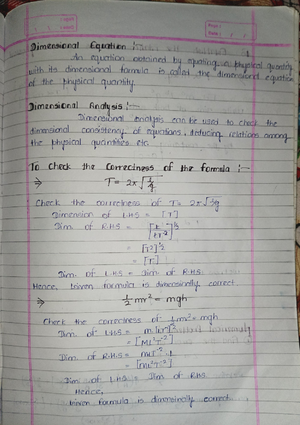 Dimensional Equation :-
An equation obtained by equating a physical quantity
with its dimensional formula is called the dimensional equation
of the physical quantity.
Dimensional Analysis :-
Dimensional analysis can be used to check the
dimensional consistency of equations, deducing relations among
the physical quantities etc.
To Check the Correctness of the formula :-
⇒ T = 2π√(l/g)
Check the correctness of T = 2π√l/g
Dimension of LHS = [T]
Dim. of R.H.S = [L/LT⁻²]^½
= [T²]^½
= [T]
Dim. of LHS = Dim. of RHS
Hence, Given formula is dimensinally correct
⇒ ½ mv² = mgh
Check the correctness of ½mv² = mgh
Dim. of L.H.S =
= [ML²T⁻²]
Dim. of R.H.S =
= [ML²T⁻²]
Dim of L.H.S = Dim of RHS
Hence,
Given formula is dimensinally correct.